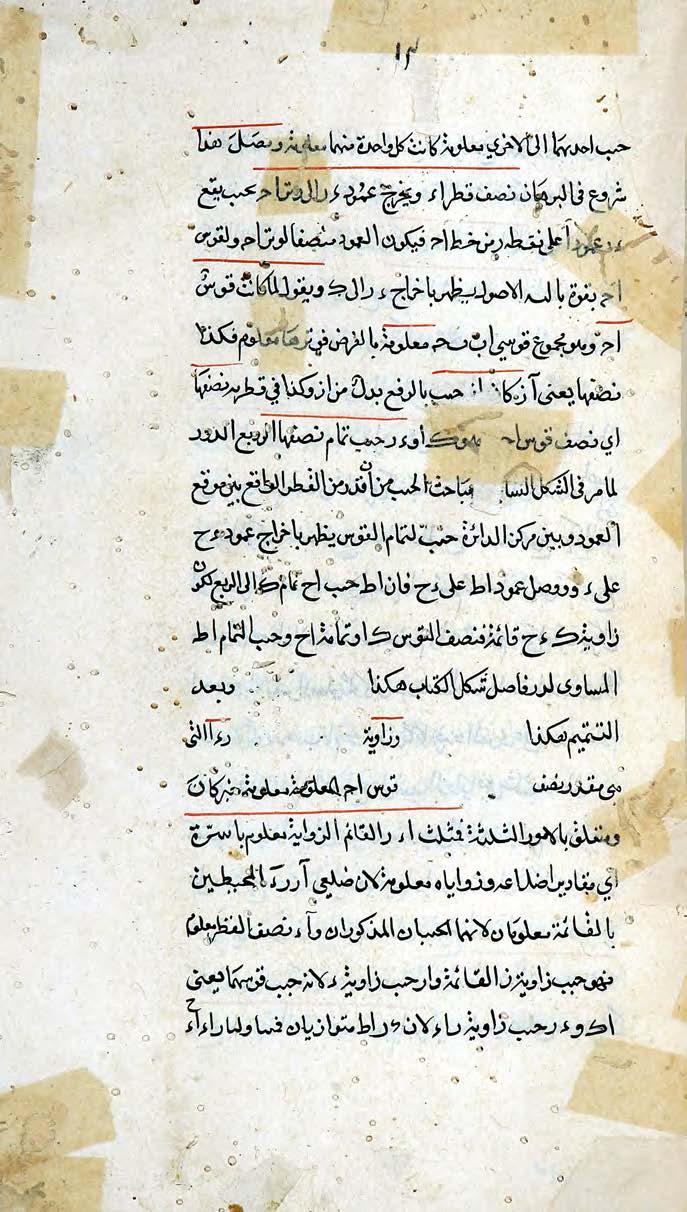 ١٣
جيب احديهما الى الاخرى معلومة كانت كل واحدة منهما معلومة ونصل هذا
شروع في البرهان نصف قطر اء ويخرج عمود ء ر الى وتر ا حـ بحيث يقع
ء ر عمودا على نقطة ر من خط ا حـ فيكون العمود منصفا لوتر ا حـ ولقوس
ا حـ بقوة الاصول يظهر باخراج ء ر الى ك ويقول لما كانت قوس
ا حـ وهو مجموع قوسي ا ب ب حـ معلومة بالفرض في معلوم فكذا
نصفها يعني ا ز جيب بالرفع بدل من ا ز وكذا في قطرية نصفها
اي نصف قوس ا حـ وهو ك ا و ء ر جيب تمام نصفها الى ربع الدور
لما مر في الشكل مباحث الجيب من ان قدر من القطر الواقع بين موقع
العمود وبين مركز الدائرة جيب لتمام القوس يظهر باخراج عمود ء ح
على ء ووصل عمود ا ط على ء ح فان ا ط جيب ا ح تمام ك ا الى الربع لكون
زاوية ك ء ح قائمة فنصف القوس ك ا وتمامه ا ح وجيب التمام ا ط
المساوى لدر فاصل شكل الكتاب هكذا وبعد
التتميم هكذا وزاوية ر ء ا التي
هي مقدر بنصف قوس ا حـ المعلومة معلومة خبر كان
ومتعلق بالامور الثلثة فمثلث ا ء ر القائم الزواية معلوم باسره
اي مقادير اضلاعه وزواياه معلومة لان ضلعي ا ر ر ء المحيطين
بالقائمة معلومان لانهما الجيبان المذكوران و ا ء نصف القطر معلوم
فهو جيب زاوية ر القائمة و ا ر جيب زاوية ء لانه جيب قوسهما يعني
ا ك و ء ر جيب زاوية ر ا ء لان ء ر ا ط متوازيان